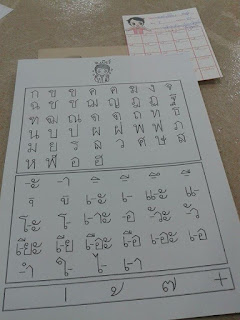 ก ข ฃ ค ฅ ฆ ง จ
ฉ ช ซ ฌ ญ ฎ ฏ ฐ
ฑ ฒ ณ ด ต ถ ท ธ
น บ ป ผ ฝ พ ฟ ภ
ม ย ร ล ว ศ ษ ส
ห ฬ อ ฮ
-ะ -า -ิ -ี -ึ -ื
-ุ -ู เ-ะ เ- แ-ะ แ-
โ-ะ โ- เ-าะ -อ -ัวะ -ัว
เ-ียะ เ-ีย เ-ือะ เ-ือ เ-อะ เ-อ
-ำ ใ- ไ- เ-า
-่ -้ -๊ -๋